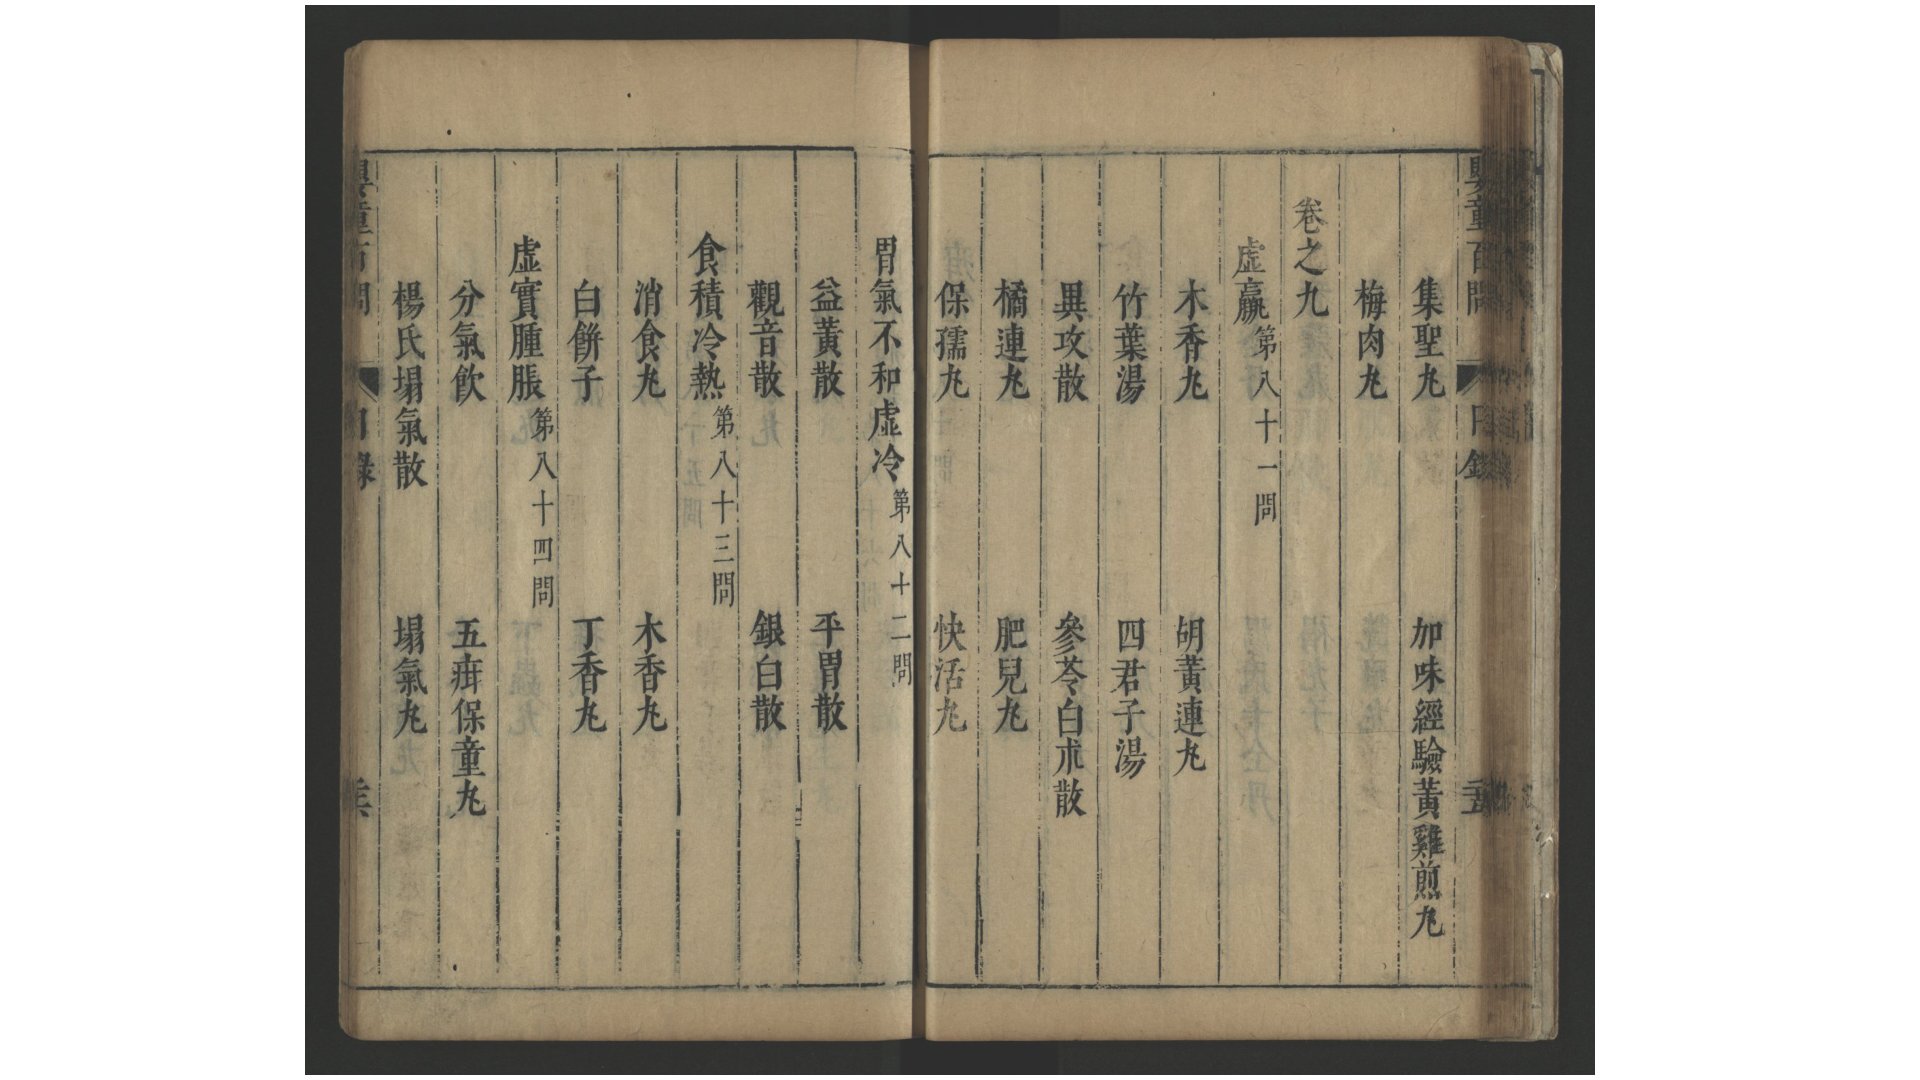 嬰童百問
目錄
集聖丸 加味經驗黃雞煎丸
梅肉丸
卷之九
虛羸第八十一問
木香丸 胡黃連丸
竹葉湯 四君子湯
異攻散 參苓白朮散
橘連丸 肥兒丸
保孺丸 快活丸
胃氣不和虛冷第八十二問
益黃散 平胃散
觀音散 銀白散
食積冷熱第八十三問
消食丸 木香丸
白餅子 丁香丸
虛實腫脹第八十四問
分氣飲 五疳保童丸
楊氏塌氣散 塌氣丸